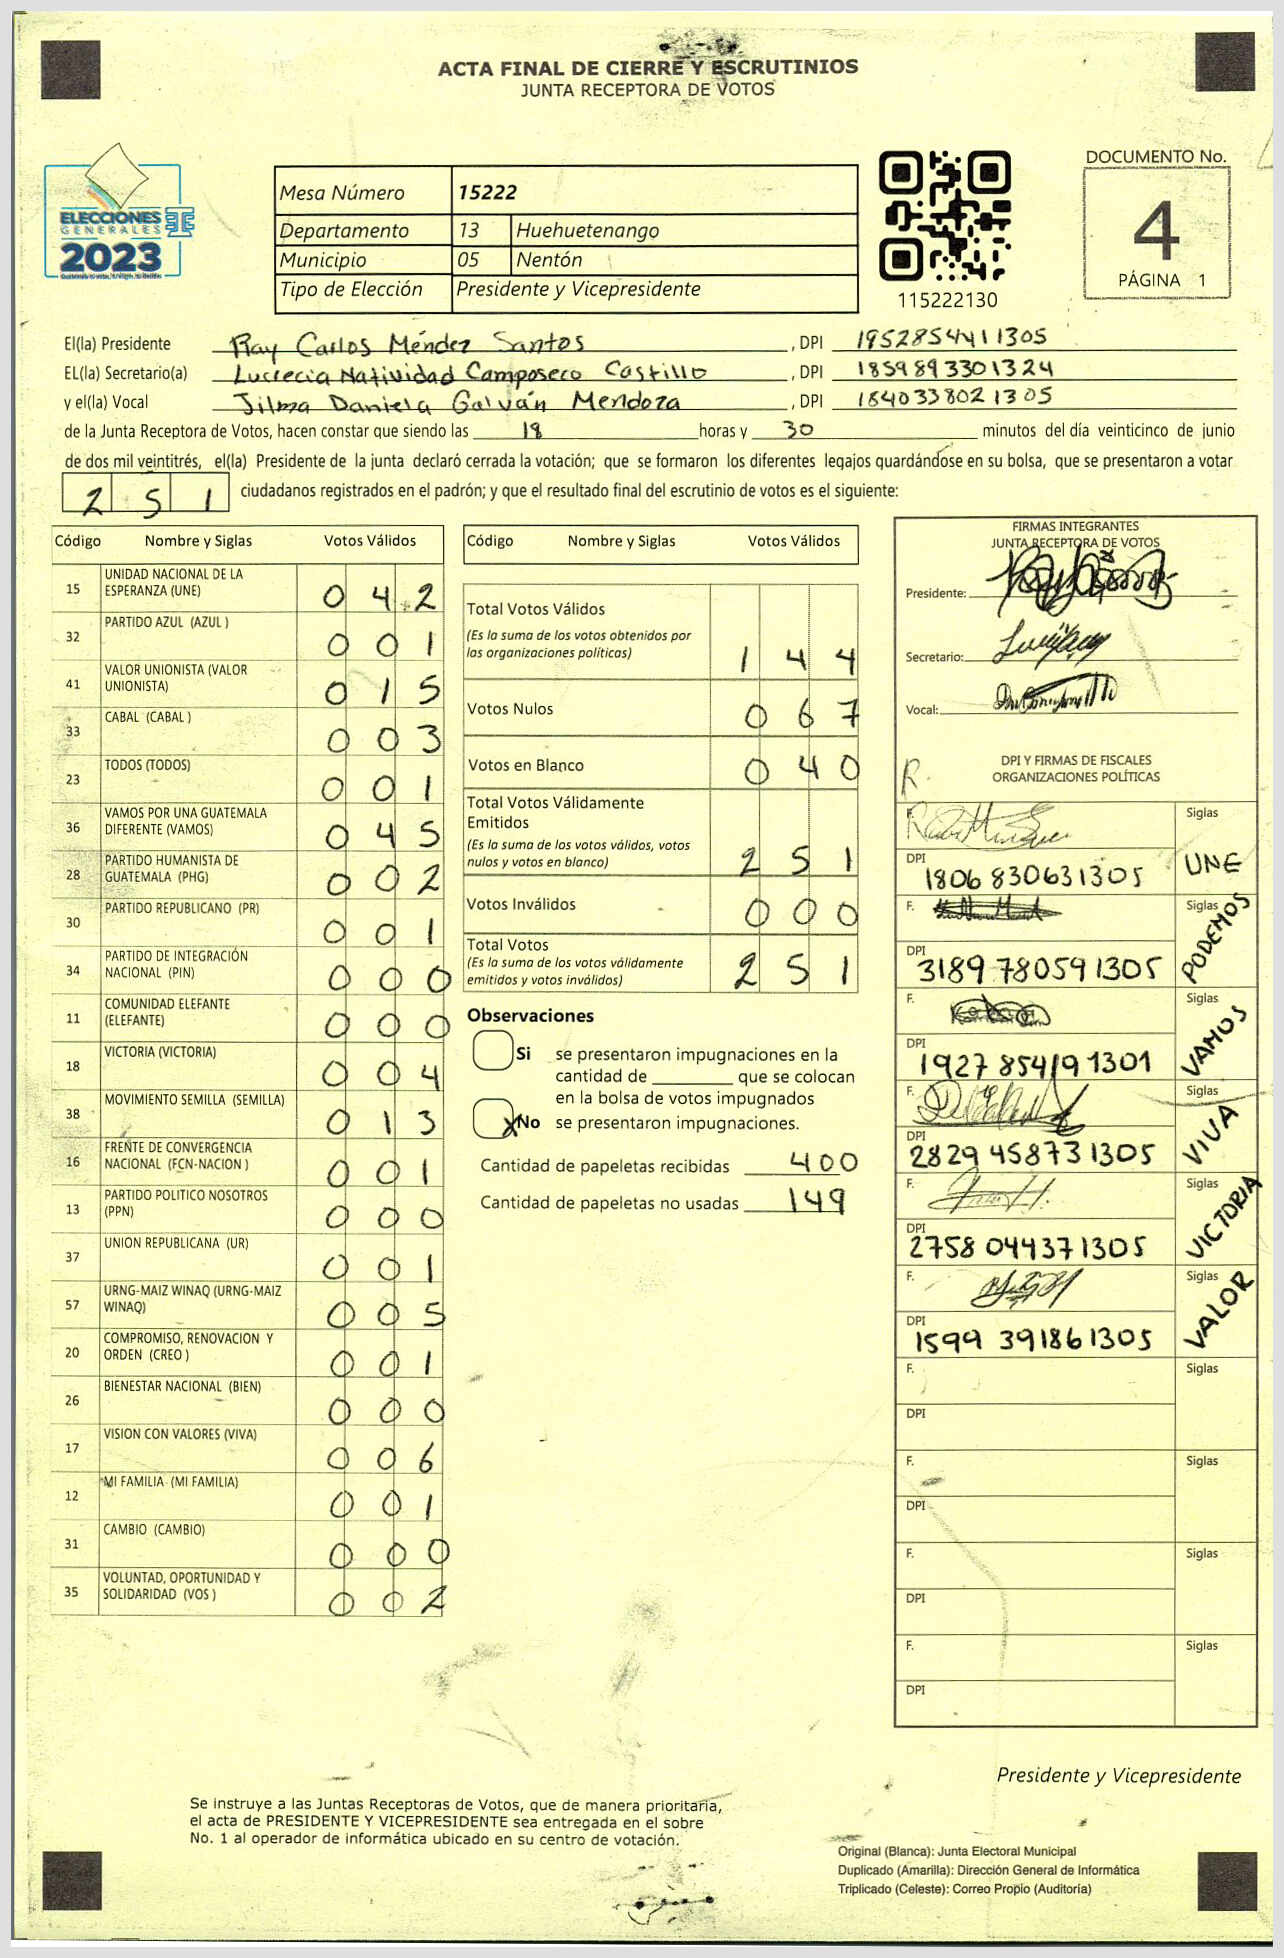 ACTA FINAL DE CIERRE Y ESCRUTINIOS
JUNTA RECEPTORA DE VOTOS
ELECCIONES
GENERALES
2023
Mesa Número 15222
Departamento 13 Huehuetenango
Municipio 05 Nentón
Tipo de Elección Presidente y Vicepresidente
115222130
DOCUMENTO No.
4
PÁGINA 1
El(la) Presidente Ray Carlos Méndez Santos , DPI 1952854411305
EL(la) Secretario(a) Lucrecia Natividad Camposeco Castillo , DPI 1859893301324
y el(la) Vocal Jilma Daniela Galván Mendoza , DPI 1840338021305
de la Junta Receptora de Votos, hacen constar que siendo las 18 horas y 30 minutos del día veinticinco de junio
de dos mil veintitrés, el(la) Presidente de la junta declaró cerrada la votación; que se formaron los diferentes legajos quardándose en su bolsa, que se presentaron a votar
251 ciudadanos registrados en el padrón; y que el resultado final del escrutinio de votos es el siguiente:
Código Nombre y Siglas Votos Válidos
15 UNIDAD NACIONAL DE LA
ESPERANZA (UNE) 042
32 PARTIDO AZUL (AZUL ) 001
41 VALOR UNIONISTA (VALOR
UNIONISTA) 015
33 CABAL (CABAL ) 003
23 TODOS (TODOS) 001
36 VAMOS POR UNA GUATEMALA
DIFERENTE (VAMOS) 045
28 PARTIDO HUMANISTA DE
GUATEMALA (PHG) 002
30 PARTIDO REPUBLICANO (PR) 001
34 PARTIDO DE INTEGRACIÓN
NACIONAL (PIN) 000
11 COMUNIDAD ELEFANTE
(ELEFANTE) 000
18 VICTORIA (VICTORIA) 004
38 MOVIMIENTO SEMILLA (SEMILLA) 013
16 FRENTE DE CONVERGENCIA
NACIONAL (FCN-NACION ) 001
13 PARTIDO POLITICO NOSOTROS
(PPN) 000
37 UNION REPUBLICANA (UR) 001
57 URNG-MAIZ WINAQ (URNG-MAIZ
WINAQ) 005
20 COMPROMISO, RENOVACION Y
ORDEN (CREO ) 001
26 BIENESTAR NACIONAL (BIEN) 000
17 VISION CON VALORES (VIVA) 006
12 MI FAMILIA (MI FAMILIA) 001
31 CAMBIO (CAMBIO) 000
35 VOLUNTAD, OPORTUNIDAD Y
SOLIDARIDAD (VOS ) 002
Código Nombre y Siglas Votos Válidos
Total Votos Válidos
(Es la suma de los votos obtenidos por
las organizaciones políticas) 144
Votos Nulos 067
Votos en Blanco 040
Total Votos Válidamente
Emitidos
(Es la suma de los votos válidos, votos
nulos y votos en blanco) 251
Votos Inválidos 000
Total Votos
(Es la suma de los votos válidamente
emitidos y votos inválidos) 251
Observaciones
Si se presentaron impugnaciones en la
cantidad de ________ que se colocan
en la bolsa de votos impugnados
X No se presentaron impugnaciones.
Cantidad de papeletas recibidas 400
Cantidad de papeletas no usadas 149
FIRMAS INTEGRANTES
JUNTA RECEPTORA DE VOTOS
Presidente:
Secretario:
Vocal:
R.
DPI Y FIRMAS DE FISCALES
ORGANIZACIONES POLÍTICAS
F. Siglas
UNE
DPI
1806 830631305
F. Siglas
PODEMOS
DPI
3189 780591305
F. Siglas
VAMOS
DPI
1927 854191301
F. Siglas
VIVA
DPI
2829 458731305
F. Siglas
VICTORIA
DPI
2758 044371305
F. Siglas
VALOR
DPI
1599 391861305
F. Siglas
DPI
F. Siglas
DPI
F. Siglas
DPI
F. Siglas
DPI
Presidente y Vicepresidente
Se instruye a las Juntas Receptoras de Votos, que de manera prioritaria,
el acta de PRESIDENTE Y VICEPRESIDENTE sea entregada en el sobre
No. 1 al operador de informática ubicado en su centro de votación.
Original (Blanca): Junta Electoral Municipal
Duplicado (Amarilla): Dirección General de Informática
Triplicado (Celeste): Correo Propio (Auditoría)